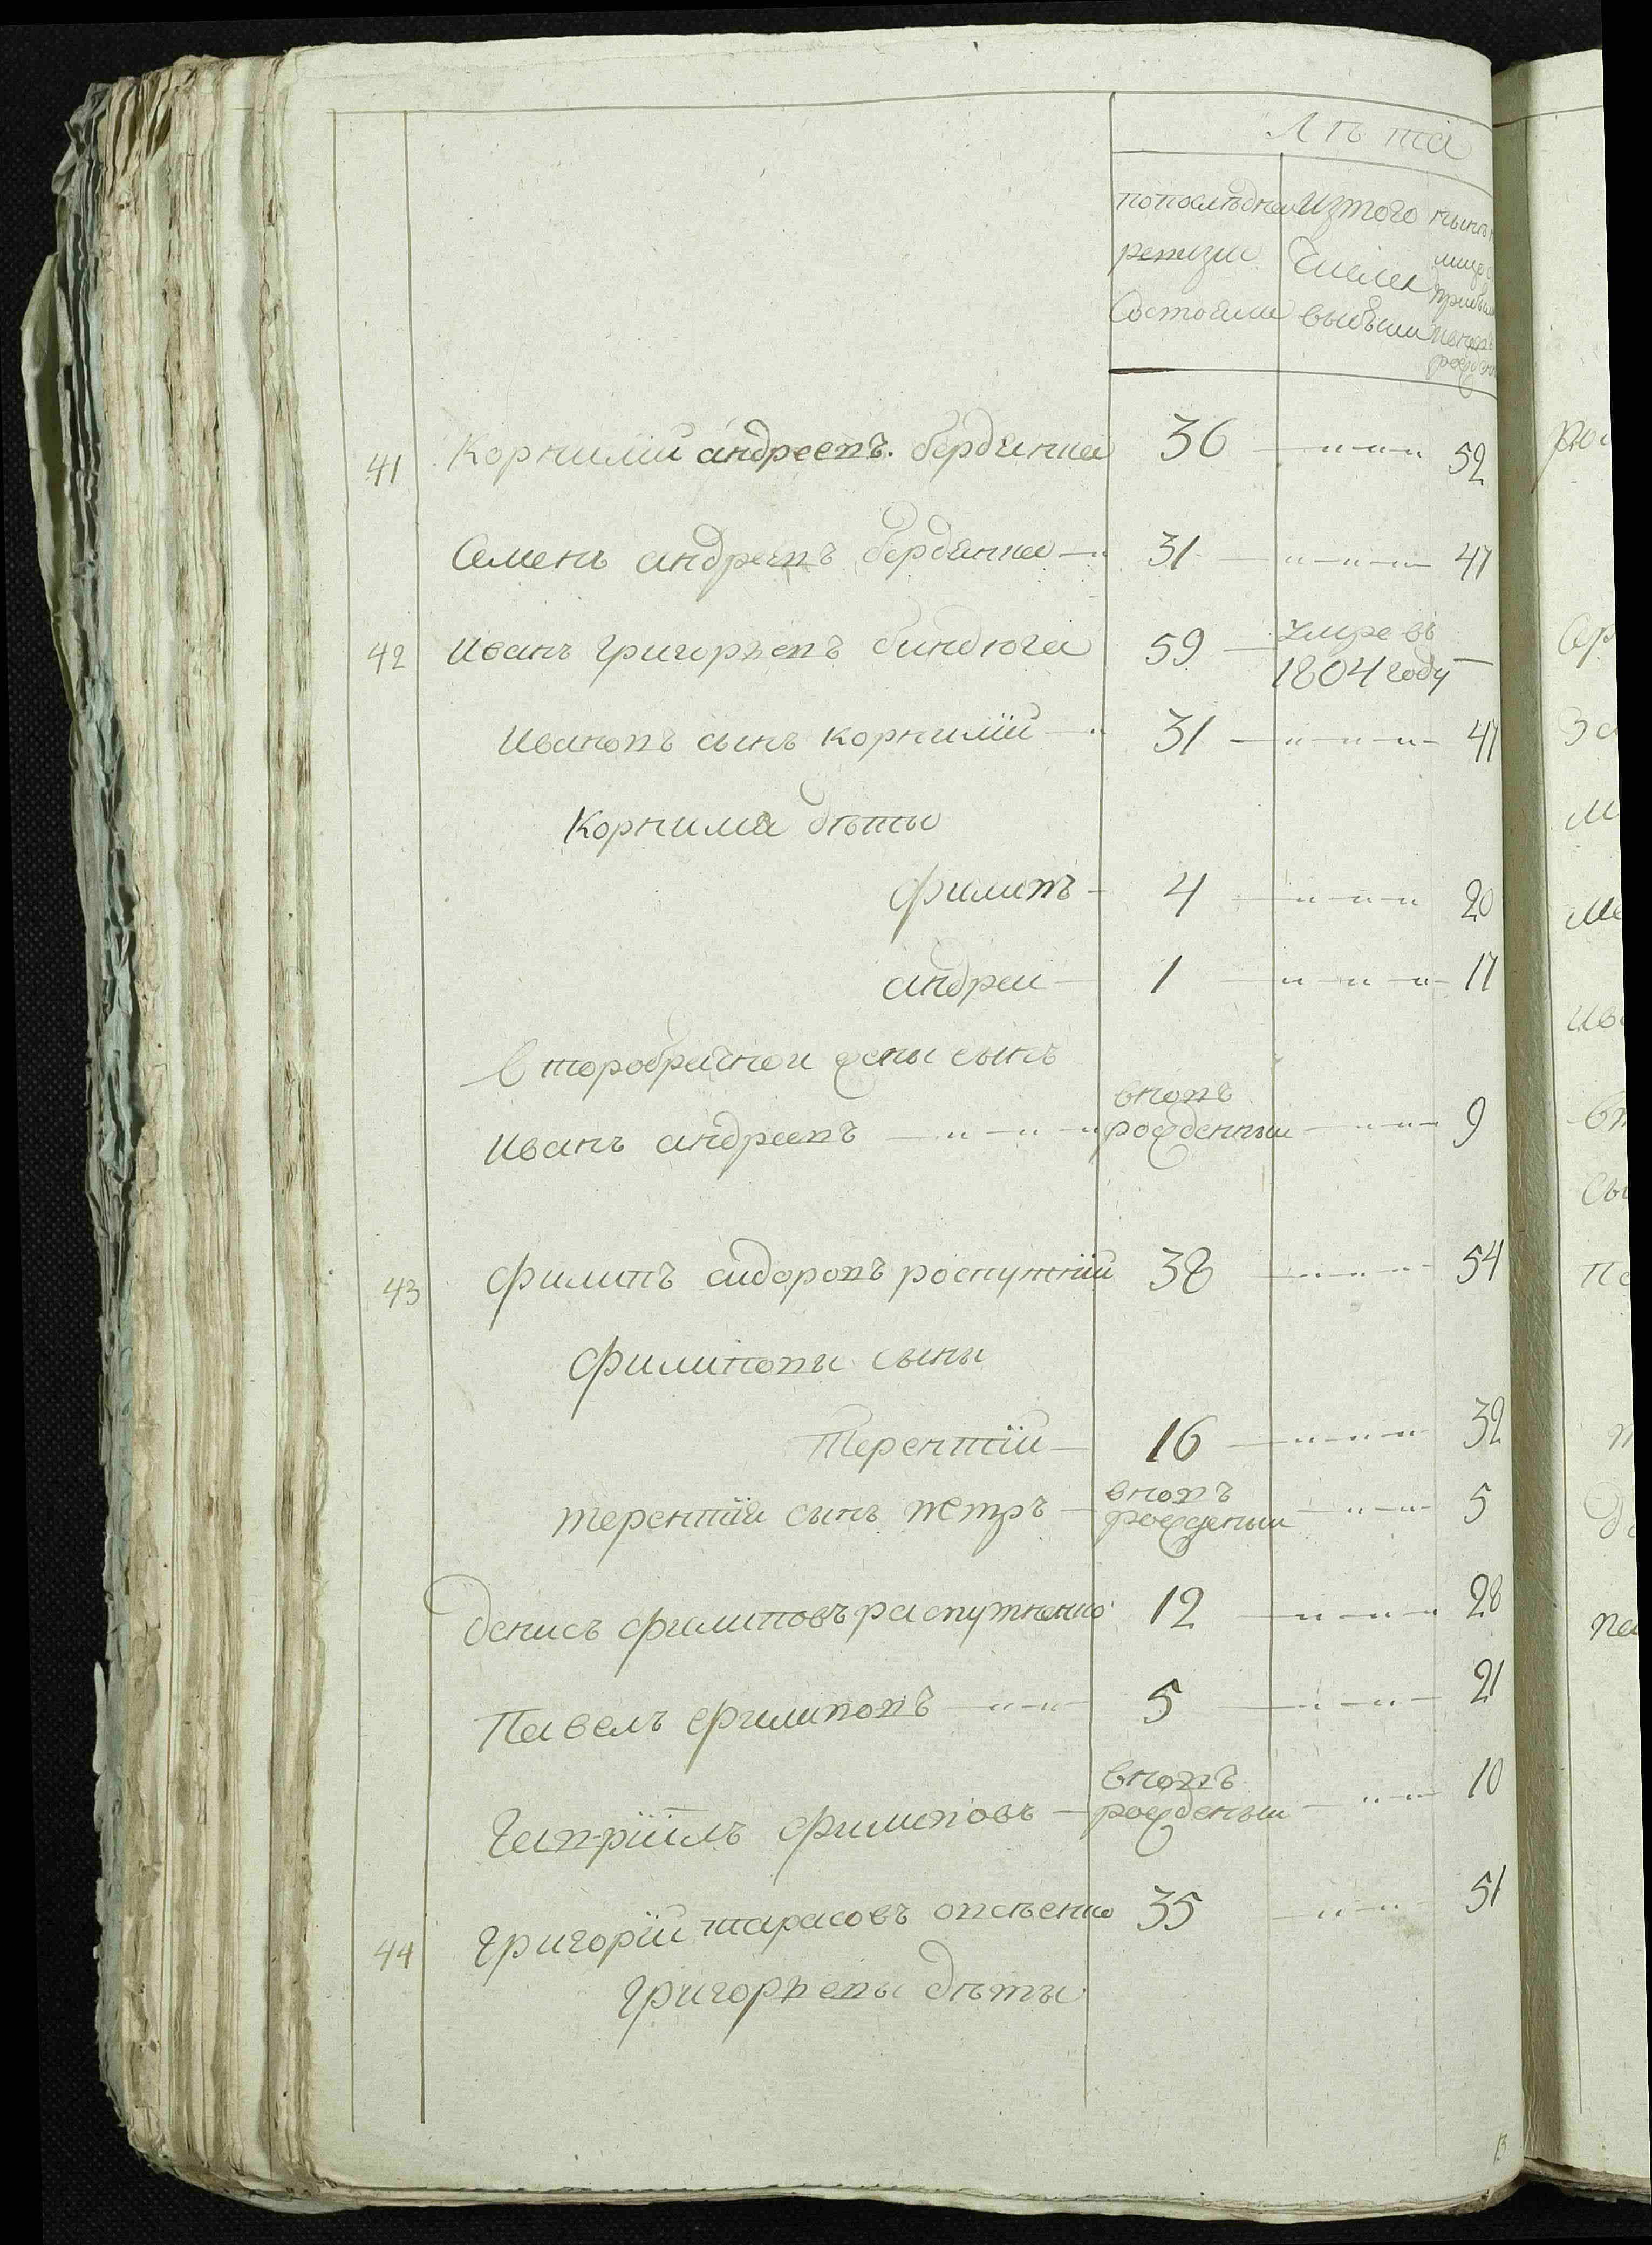 Лѣта
попоследнеи
ревизии
Состояли
изтого
числа
выбыли
нынѣ
вновь
41 Корнилiй андреевъ бердянка 36 52
Семенъ андреевъ бердянка 31 47
42 Иванъ григорьевъ биндюга 59 умре въ
1804 году
Ивановъ сынъ корнилiй 31 47
Корнилiя дѣты
филипъ 4 20
андреи 1 17
второбрачнои жены сынъ
Иванъ андреевъ вновь
рожденныи 9
43 филипъ сидоровъ роспутнiй 38 54
филиповы сыны
терентiй 16 32
терентiя сынъ петръ вновь
рожденыи 5
денисъ филиповъ распутненко 12 28
Павелъ филиповъ 5 21
Гаврiилъ филиповъ вновь
рожденыи 10
44 григорiй тарасовъ овсѣенко 35 51
григорьевы дѣты